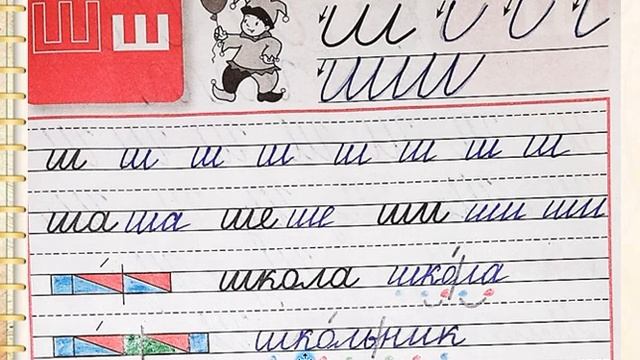 Ш ш
ш
ш ш ш ш ш ш ш ш
ша ша ше ше ши ши ши
школа шко́ла
шко́льник